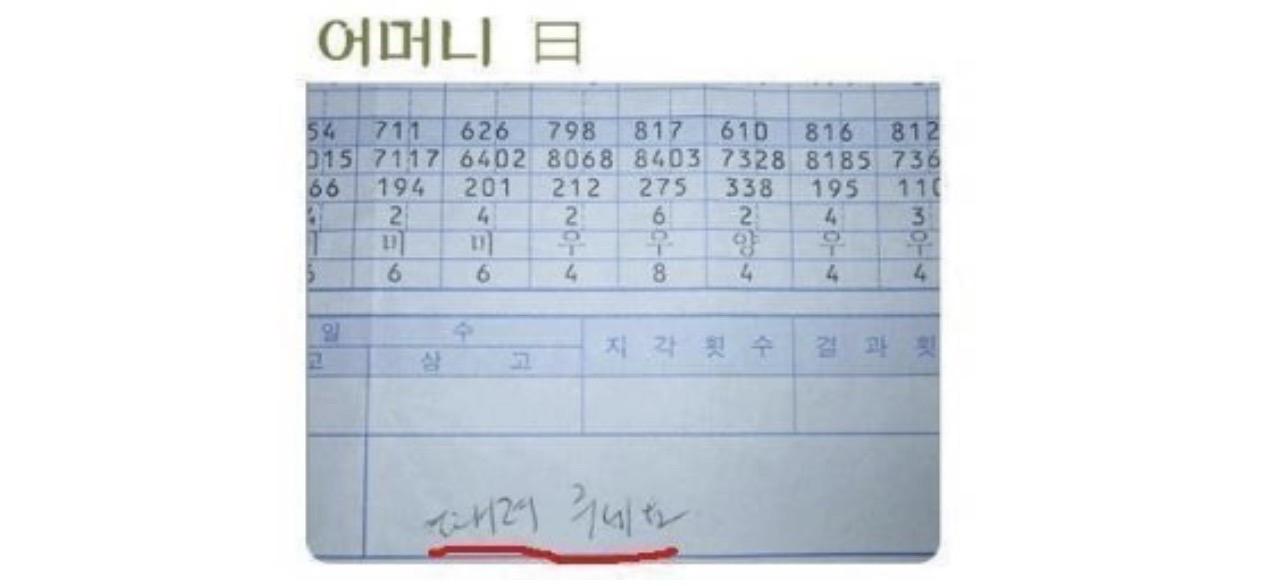 어머니 曰
54 711 626 798 817 610 816 812
015 7117 6402 8068 8403 7328 8185 736
66 194 201 212 275 338 195 110
2 4 2 6 2 4 3
미 미 우 우 양 우 우
6 6 4 8 4 4 4
일 수 지 각 횟 수 결 과 횟
고 삼 고
때려 주세요